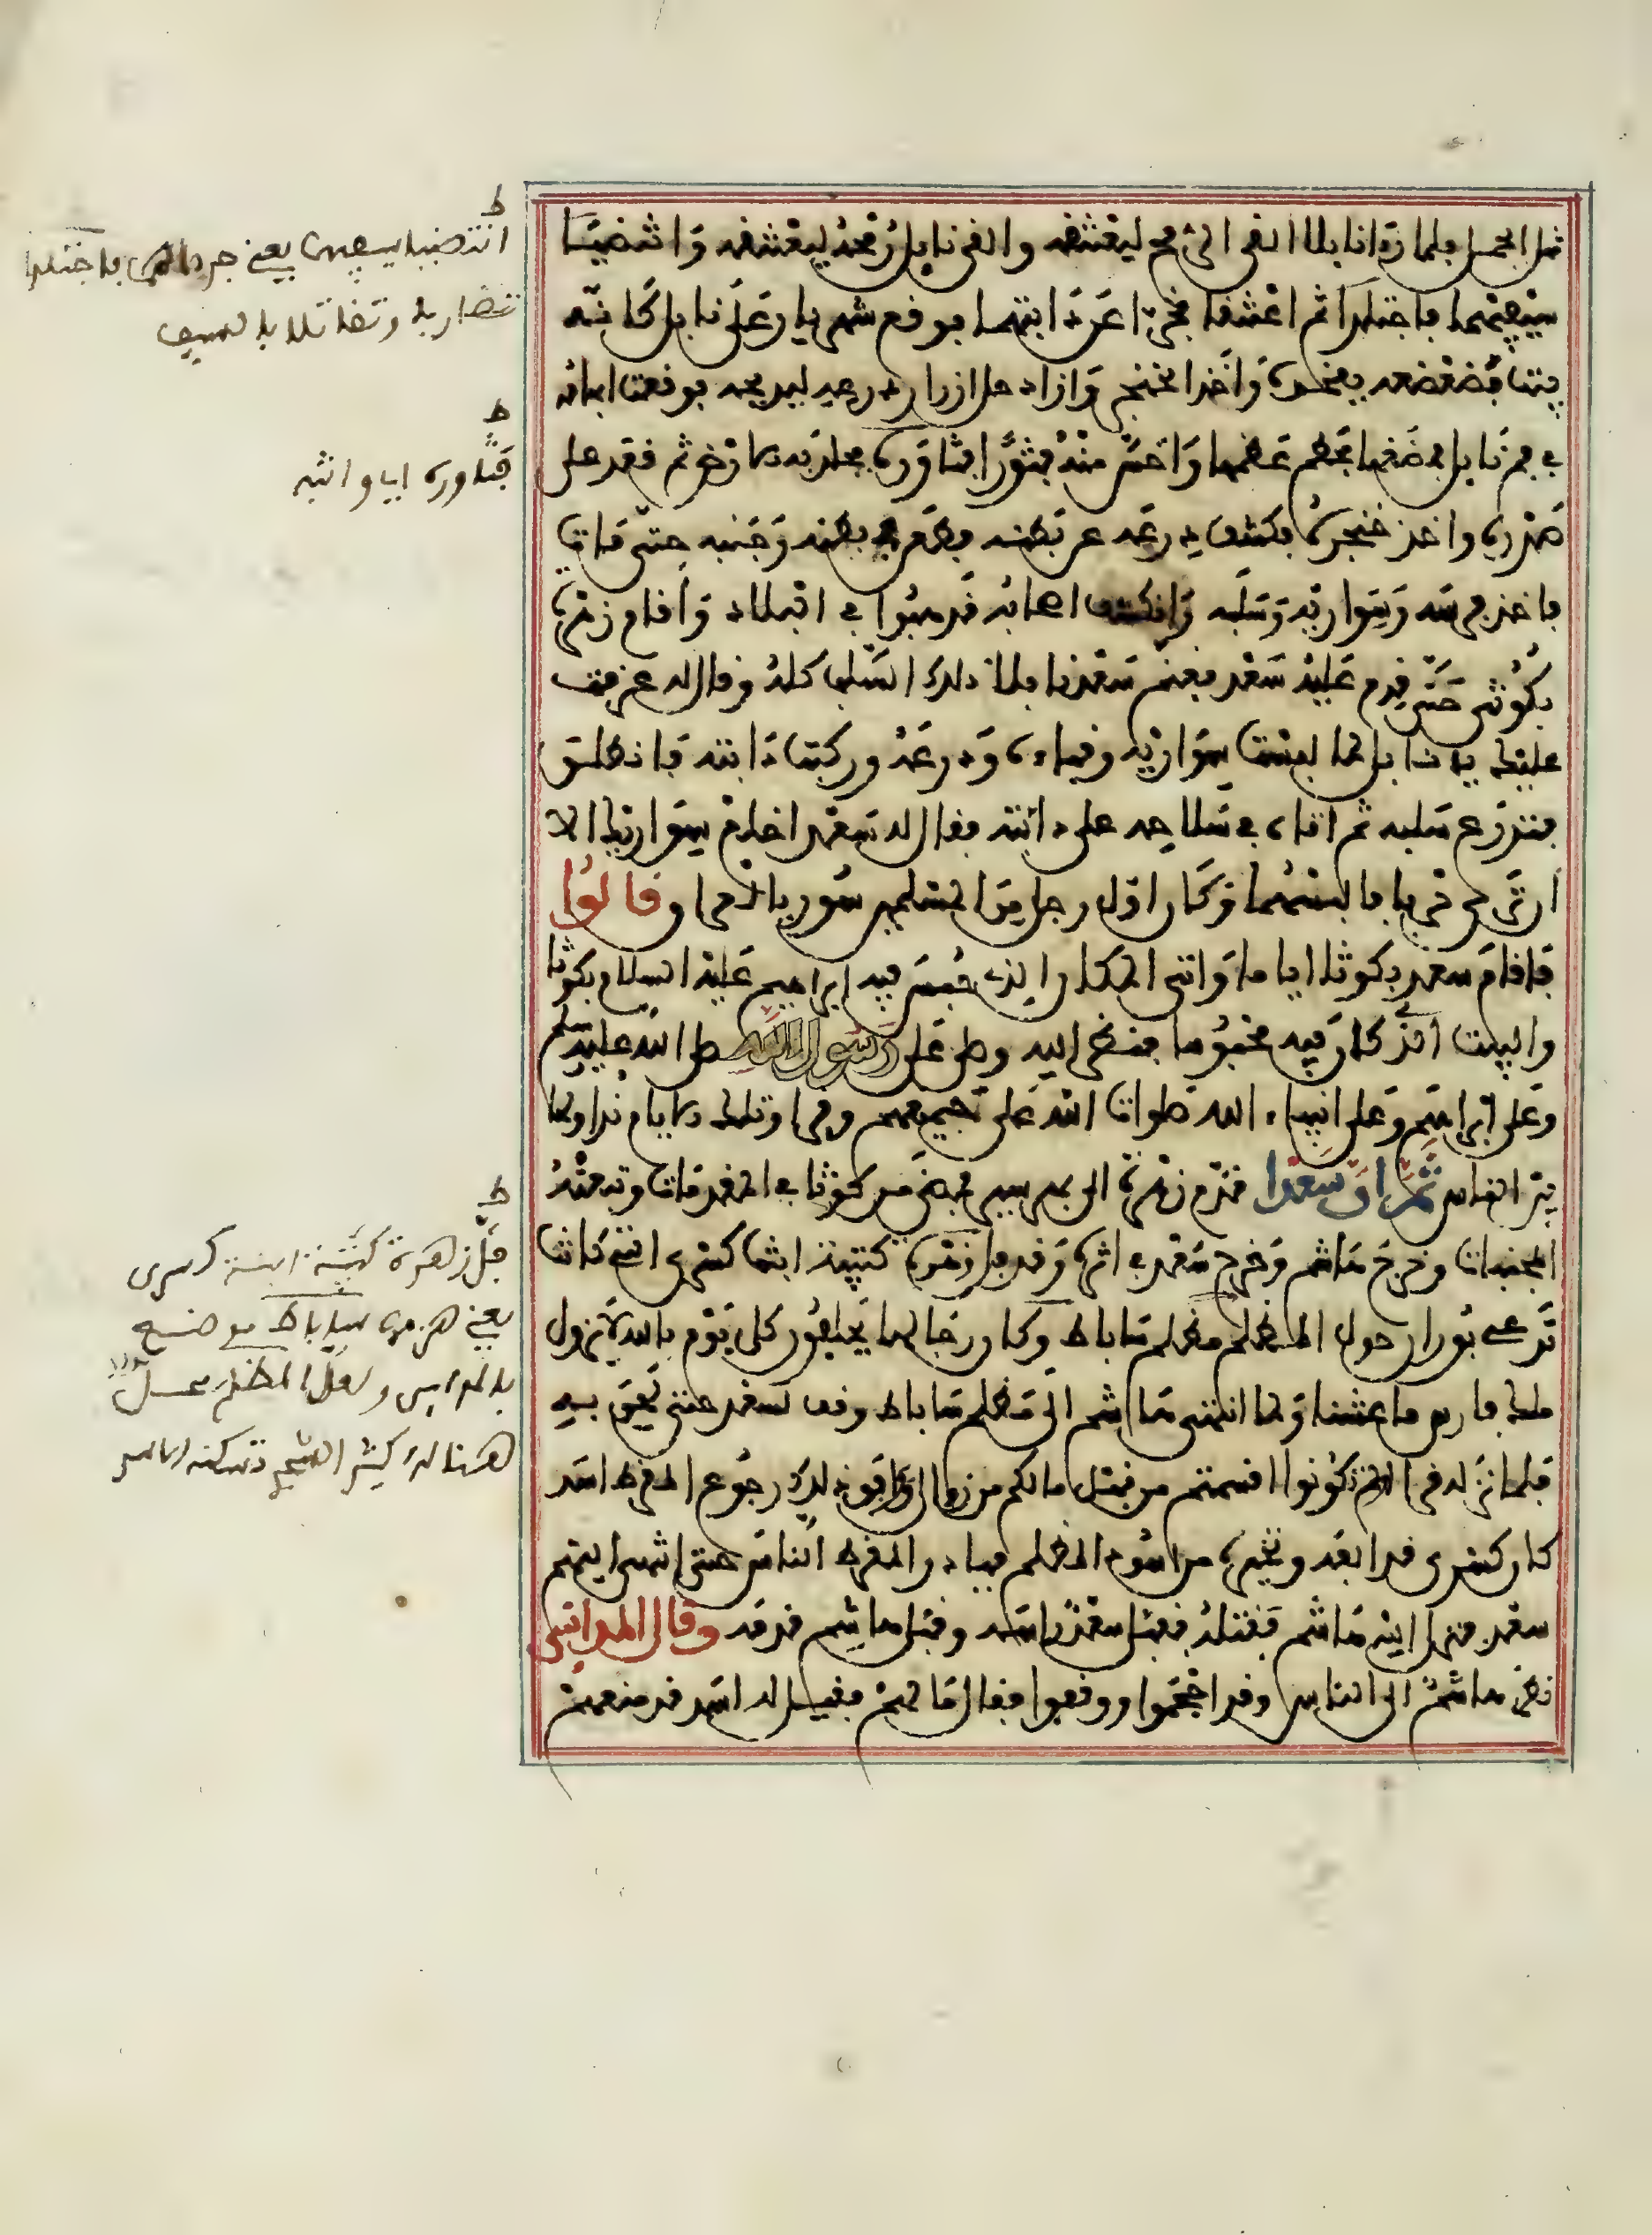 مثل الجمل فلما رءا نابلا القى الرمح ليعتنقه والقى نابل رمحه ليعتنقه وانتضيا
سيفيهما فاجتلدا ثم اعتنقا فخرا عن دابتيهما فوقع شهريار على نابل كانه
بيت فضغطه بفخذه واخذ الخنجر واراد حل ازرار درعه ليذبحه فوقعت ابهامه
في فم نابل فمضغها فحطم عظمها واحس منه فتورا فثاوره فجلد به الارض ثم قعد على
صدره واخذ خنجره فكشف درعه عن بطنه فطعن في بطنه وجنبه حتى مات
فاخذ فرسه وسواريه وسلبه وانكشف اصحابه فذهبوا في البلاد واقام زهرة
بكوثى حتى قدم عليه سعد فغنم سعد نابلا ذلك السلب كله وقال له عزمت
عليك يا نابل لما لبست سواريه وقباءه ودرعه وركبت دابته فانطلق
فتدرع سلبه ثم اتاه في سلاحه على دابته فقال له سعد اخلع سواريك الا
ان ترى حربا فالبسهما فكان اول رجل من المسلمين سور بالعراق وقالوا
فاقام سعد بكوثا اياما واتى المكان الذي حبس فيه ابراهيم عليه السلام بكوثا
والبيت الذي كان فيه محبوسا فنظر اليه وصلى على رسول الله صلى الله عليه وسلم
وعلى ابراهيم وعلى انبياء الله صلوات الله على جميعهم وقرا وتلك الايام نداولها
بين الناس ثم ان سعدا قدم زهرة الى بهرسير فمضى من كوثا في المقدمات وتبعته
المجنبات وخرج هاشم وخرج سعد في اثره وقد فل زهرة كتيبة ابنة كسرى التي كانت
تدعى بوران حول المظلم مظلم ساباط وكان رجالها يحلفون كل يوم بالله لا يزول
ملك فارس ما عشنا ولما انتهى هاشم الى مظلم ساباط وقف لسعد حتى لحق به
فلما نزله قرا اولم تكونوا اقسمتم من قبل ما لكم من زوال فوافق ذلك رجوع المقرط اسد
كان كسرى قد الفه وتخيره من اسود المظلم فبادر المقرط الناس حتى انتهى اليهم
سعد فنزل اليه هاشم فقتله فقبل سعد راسه وقبل هاشم قدمه وقال المدائني
نظر هاشم الى الناس وقد احجموا ووقفوا فقال ما لهم فقيل له اسد قد منعهم
ط
انتضيا سيفيهما يعني جردا فاجتلدا
تضاربا وتقاتلا بالسيف
ط
فثاوره اي واثبه
ط
فل زهرة كتيبة ابنة كسرى
يعني هزم ساباط موضع
بالمدائن ولعل المظلم محل
هنالك كثير الشجر تسكنه الاسد